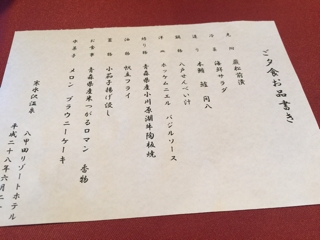 ご夕食お品書き
先附 
冷菜 海鮮サラダ
造り 本鮪 鮭 間八
鍋物 八戸せんべい汁
洋皿 ホッケムニエル バジルソース
焼き物 青森県産小川原湖牛陶板焼
油物 帆立フライ
蓋物 小茄子揚げ浸し
お食事 青森県産米つがるロマン 香物
水菓子 メロン ブラウニーケーキ
寒水沢温泉
八甲田リゾートホテル
平成二十八年六月二